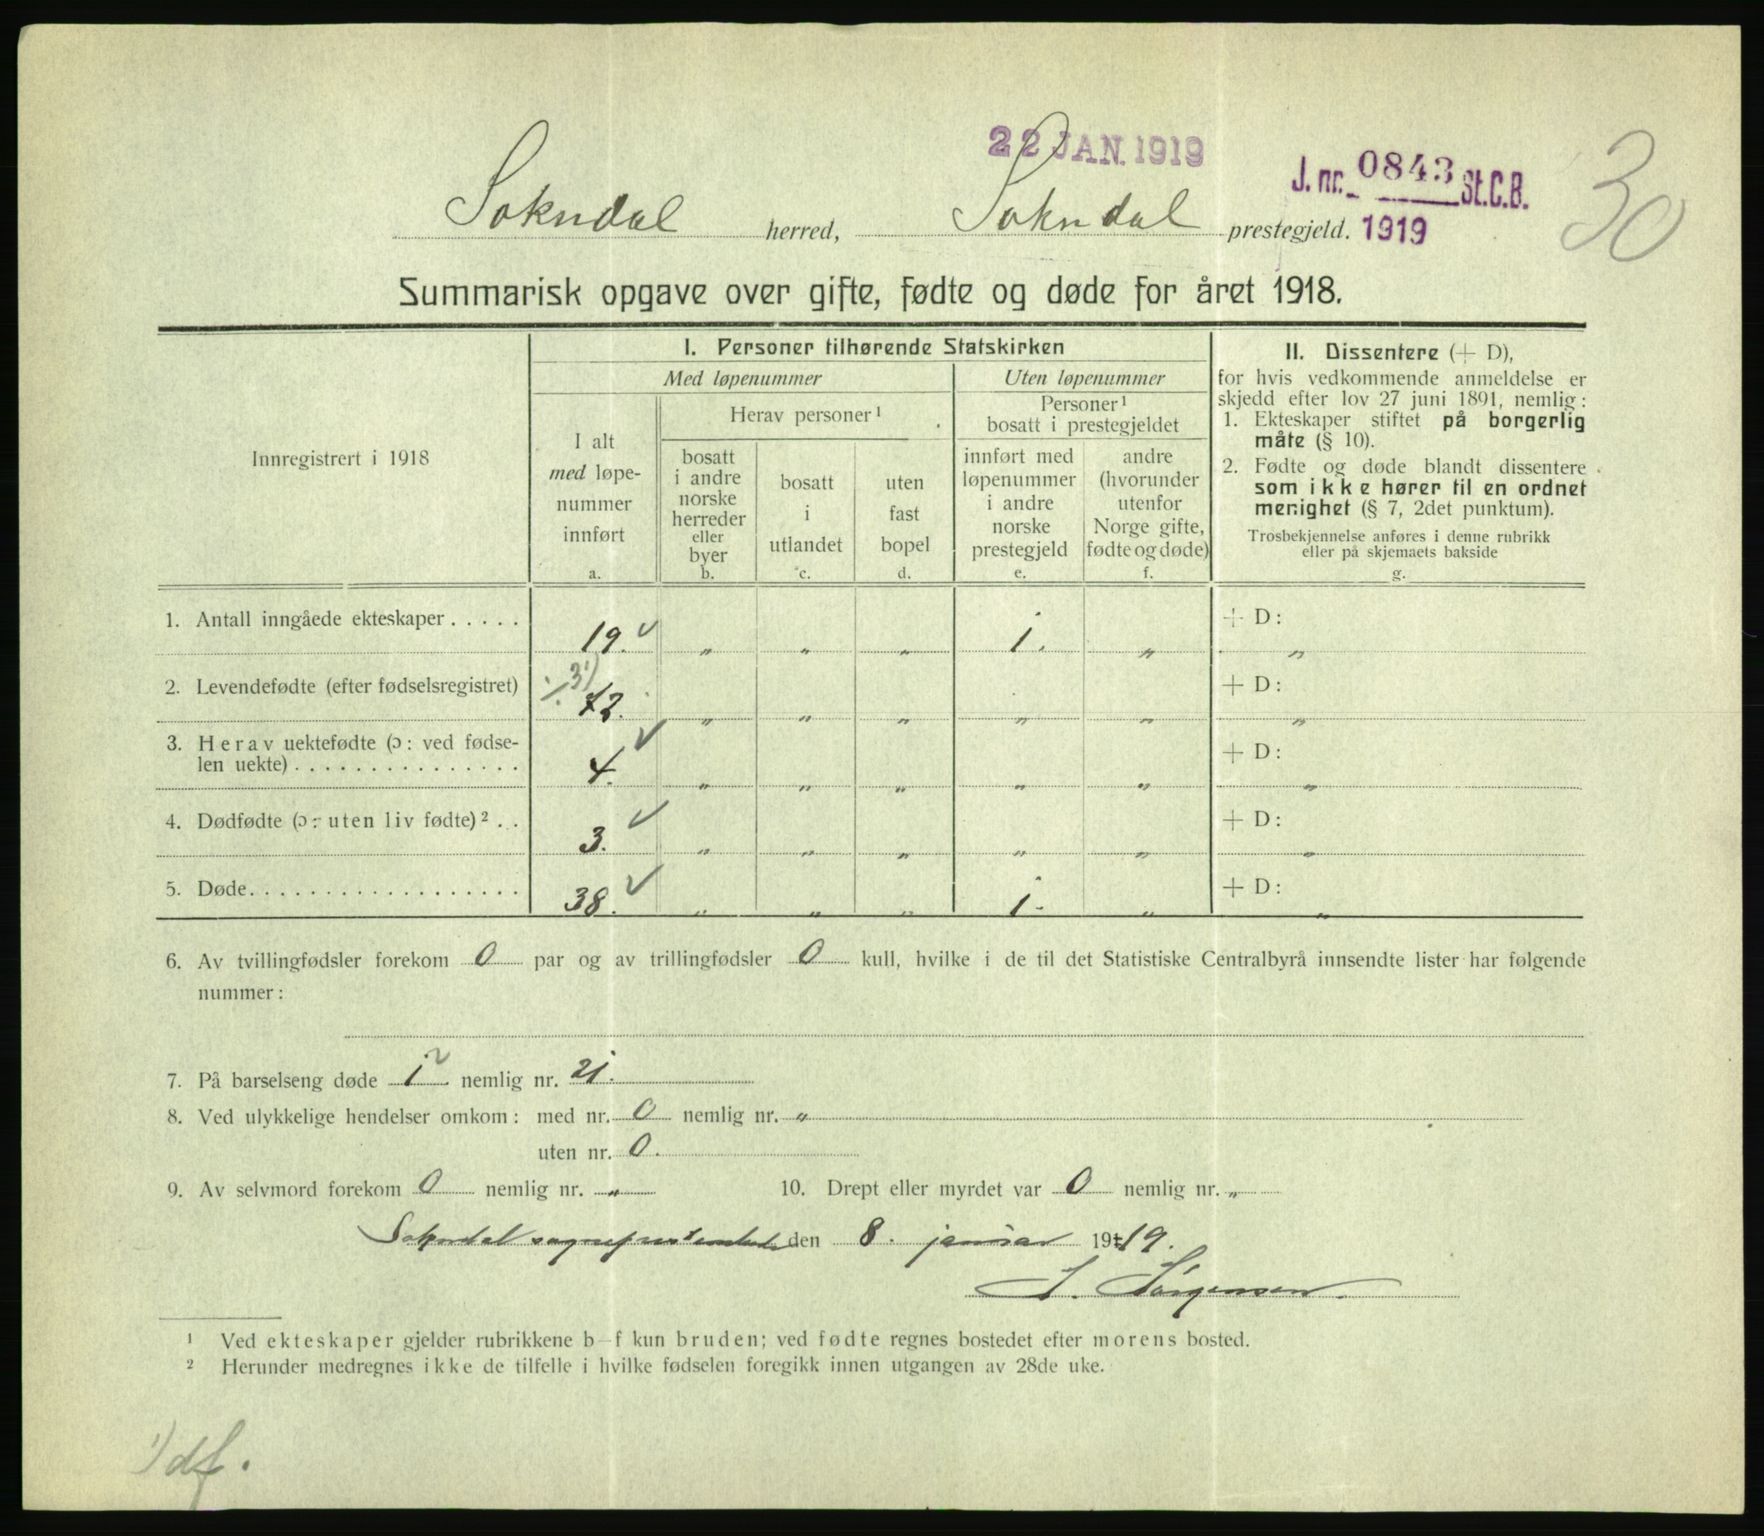 22 JAN. 1919
J. nr. 0843 St.C.B.
1919
30
Sokndal herred, Sokndal prestegjeld.
Summarisk opgave over gifte, fødte og døde for året 1918.
Innregistrert i 1918
I. Personer tilhørende Statskirken
Med løpenummer
Uten løpenummer
I alt
med løpe-
nummer
innført
a.
Herav personer¹
bosatt
i andre
norske
herreder
eller
byer
b.
bosatt
i
utlandet
c.
uten
fast
bopel
d.
Personer¹
bosatt i prestegjeldet
innført med
løpenummer
i andre
norske
prestegjeld
e.
andre
(hvorunder
utenfor
Norge gifte,
fødte og døde)
f.
II. Dissentere (+ D),
for hvis vedkommende anmeldelse er
skjedd efter lov 27 juni 1891, nemlig:
1. Ekteskaper stiftet på borgerlig
måte (§ 10).
2. Fødte og døde blandt dissentere
som ikke hører til en ordnet
menighet (§ 7, 2det punktum).
Trosbekjennelse anføres i denne rubrikk
eller på skjemaets bakside
g.
1. Antall inngåede ekteskaper ..... 19. „ „ „ 1. „ + D: „
÷ 3 ¹)
2. Levendefødte (efter fødselsregistret) 72. „ „ „ „ „ + D: „
3. Herav uektefødte (ɔ: ved fødse-
len uekte) ............... 4. „ „ „ „ „ + D: „
4. Dødfødte (ɔ: uten liv fødte)² .. 3. „ „ „ „ „ + D: „
5. Døde .................. 38. „ „ „ 1. „ + D: „
6. Av tvillingfødsler forekom 0 par og av trillingfødsler 0 kull, hvilke i de til det Statistiske Centralbyrå innsendte lister har følgende
nummer:
7. På barselseng døde 1 nemlig nr. 21.
8. Ved ulykkelige hendelser omkom: med nr. 0 nemlig nr. „
uten nr. 0.
9. Av selvmord forekom 0 nemlig nr. „ 10. Drept eller myrdet var 0 nemlig nr. „
Sokndal sogneprestembede den 8. januar 1919.
S. Sørgensen.
¹ Ved ekteskaper gjelder rubrikkene b–f kun bruden; ved fødte regnes bostedet efter morens bosted.
² Herunder medregnes ikke de tilfelle i hvilke fødselen foregikk innen utgangen av 28de uke.
¹) df.